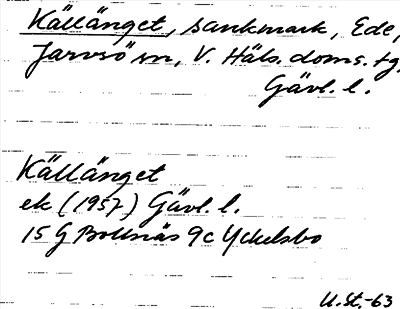 Källänget, sankmark, Ede,
Järvsö sn, V. Häls. doms. tg.
Gävl. l.
Källänget
ek (1957) Gävl. l.
15 G Bollnäs 9c Yckelsbo
U.St.-63